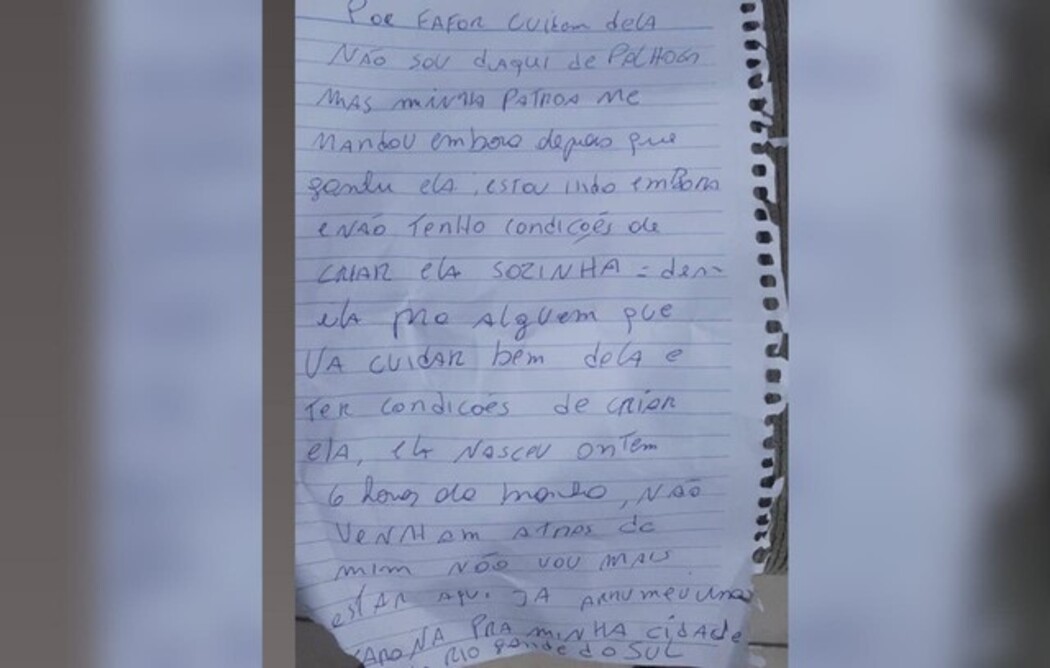 Por FAFOR CUitam delA
NÃO SOU dAqui de PALHOÇA
MAS minha PATROA Me
MANDOU embora depois que
ganhei elA, estou indo emBora
e NÃO TenHo condições de
CRIAR elA SOZINHA = dem
elA pro Alguem que
VA CUIDAR bem delA e
Ter condicões de criar
elA, elA NASCeU onTem
6 horas da manhã, NÃO
VeNHAm ATRAS de
mim NÃO VOU MAIS
estAR Aqui JA ARRUMei UMA
CARONA PRA miNHA cidAde
RIO gande do SUL